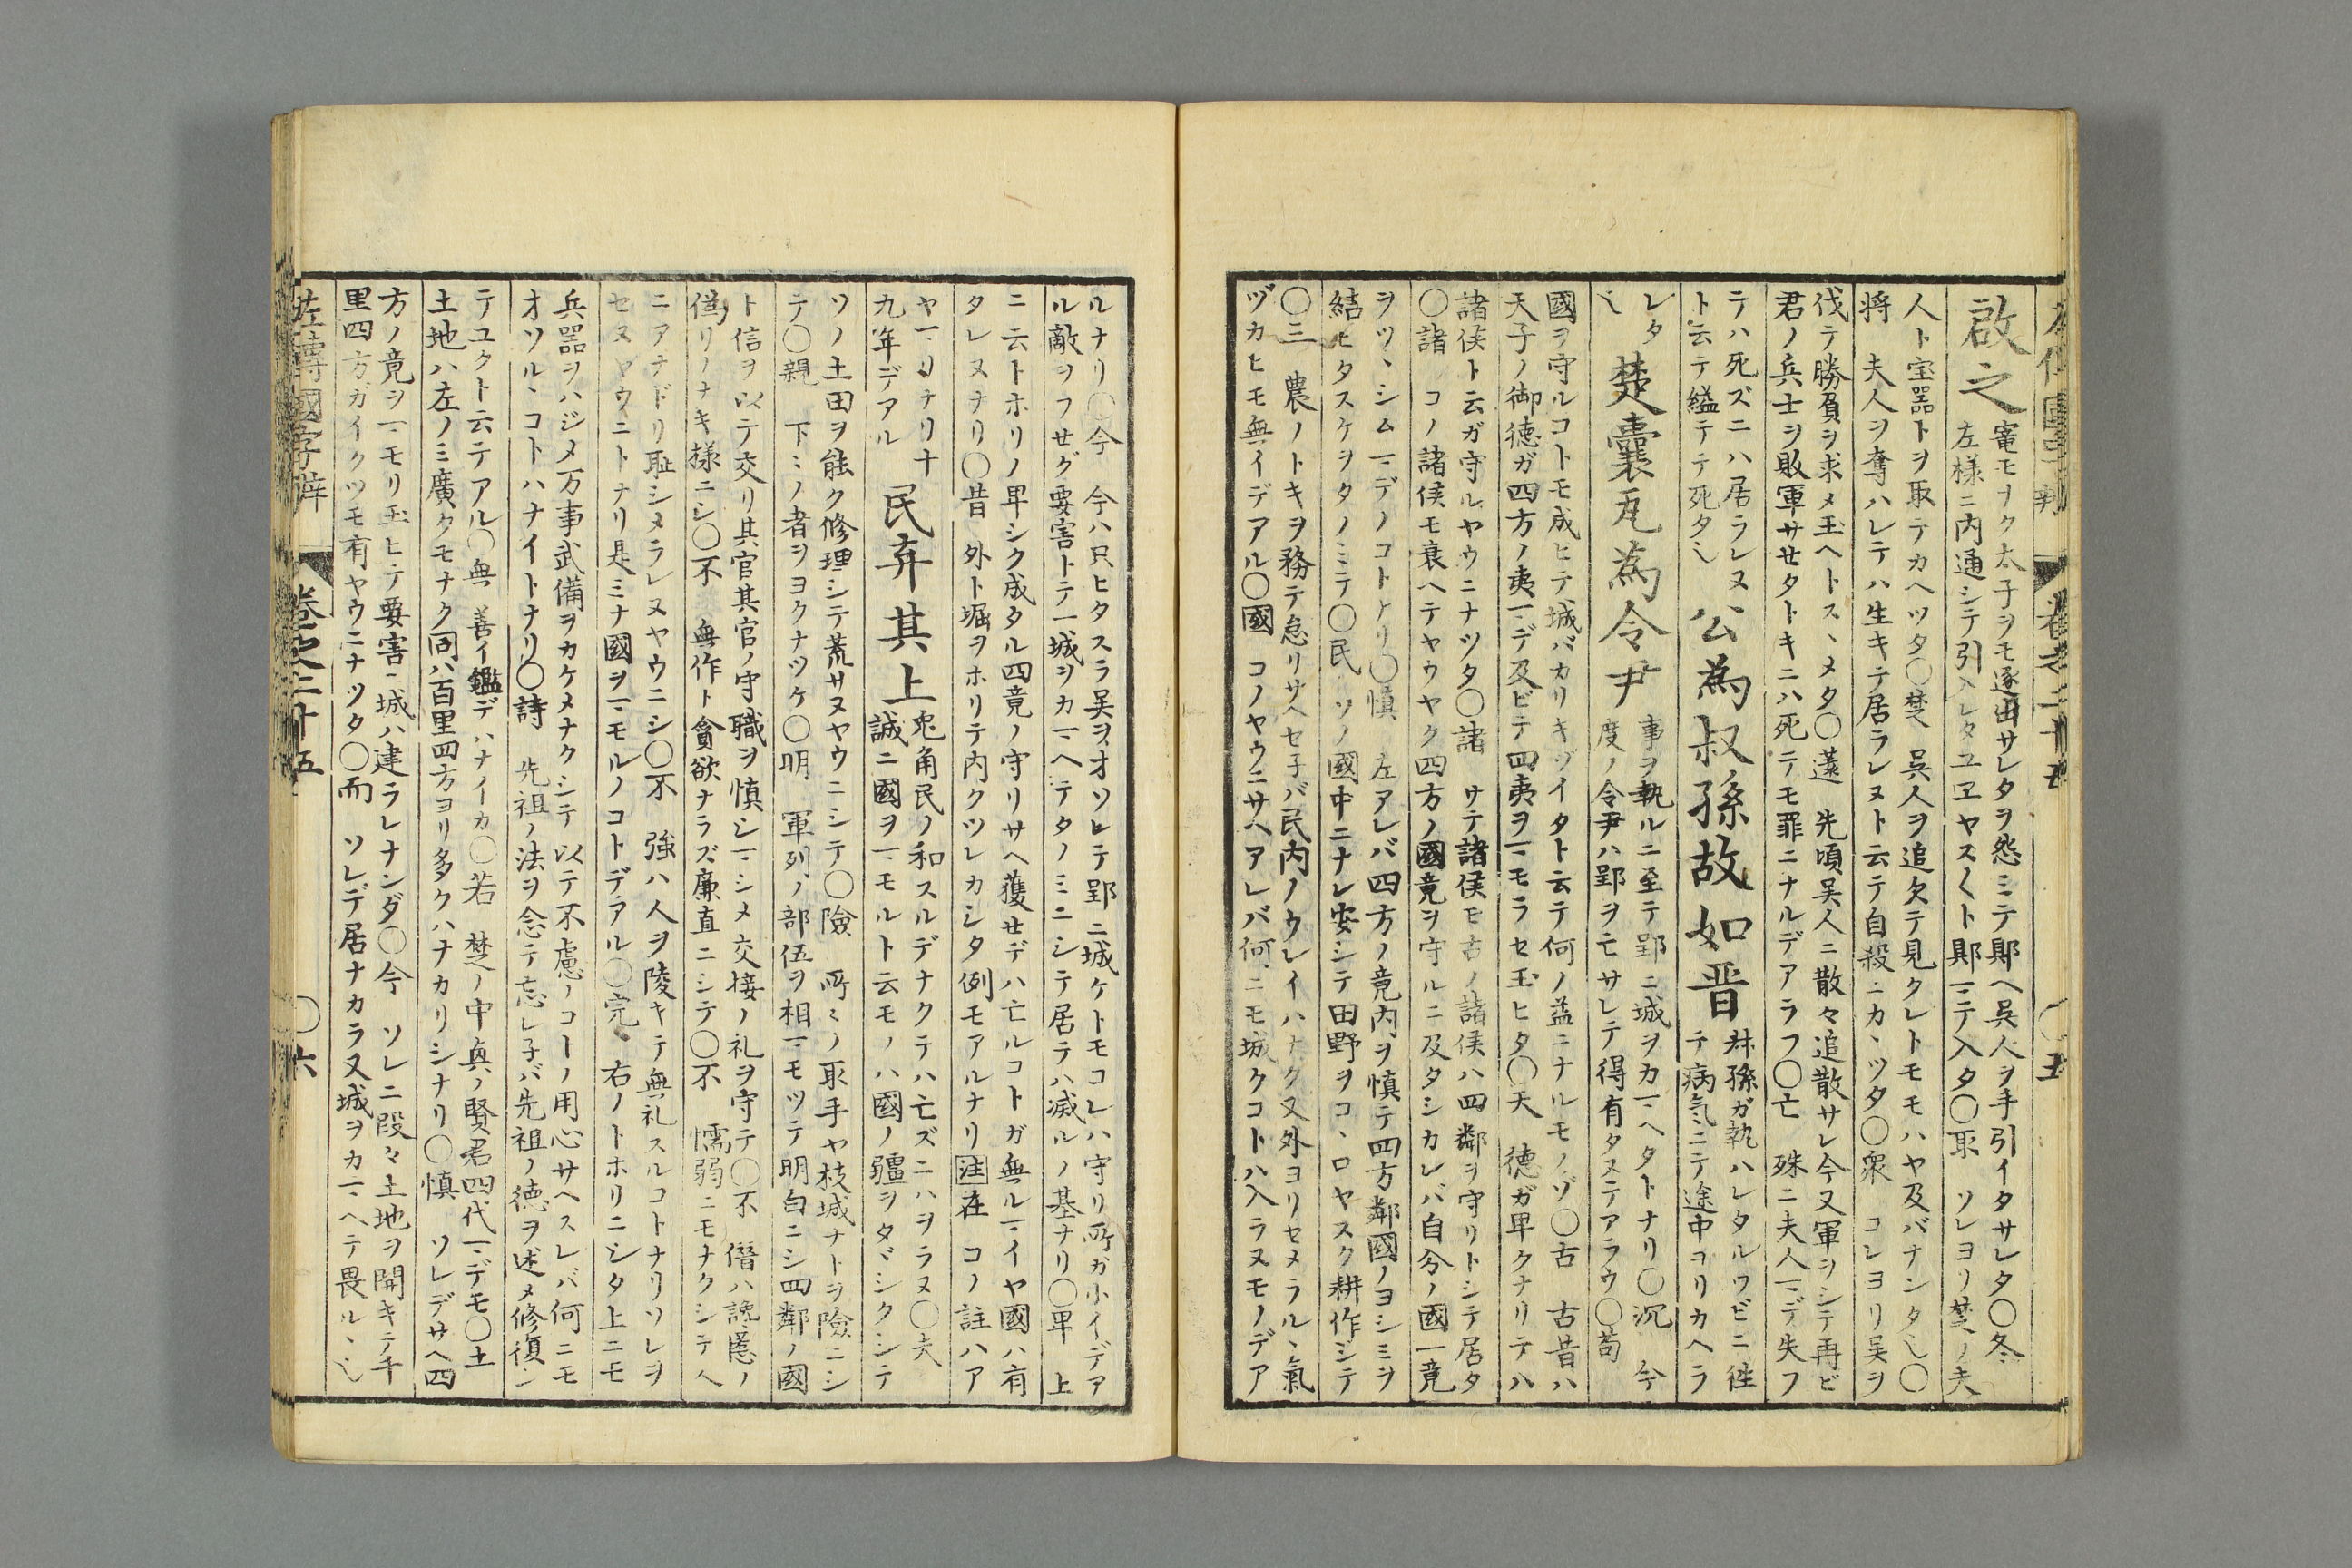 左傳國字辨 卷之二十五 〇五
啟之
竃モヲク太子ヲモ逐出サレタヲ怨ミテ郹ヘ呉人ヲ手引イタサレタ〇冬
左様ニ内通シテ引入レタユヱヤスくト郹マテ入タ〇取 ソレヨリ楚ノ夫
人ト宝器トヲ取テカヘツタ〇楚 呉人ヲ追欠テ見クレトモモハヤ及バナンタ〆〇
将 夫人ヲ奪ハレテハ生キテ居ラレヌト云テ自殺ニカヽツタ〇衆 コレヨリ呉ヲ
伐テ勝負ヲ求メ玉ヘトスヽメタ〇遠 先頃呉人ニ散々追散サレ今又軍ヲシテ再ビ
君ノ兵士ヲ敗軍サセタトキニハ死テモ罪ニナルデアラフ〇亡 殊ニ夫人マデ失フ
テハ死ズニハ居ラレヌ
ト云テ縊テ死タ〆
公為叔孫故如晋
叔孫ガ執ハレタルワビニ徃
テ病気ニテ途中ヨリカヘラ
レタ
〆
楚囊瓦為令尹
事ヲ執ルニ至テ郢ニ城ヲカマヘタトナリ〇沉 今
度ノ令尹ハ郢ヲ亡サレテ得有タヌテアラウ〇苟
國ヲ守ルコトモ成ヒテ城バカリキヅイタト云テ何ノ益ニナルモノゾ〇古 古昔ハ
天子ノ御徳ガ四方ノ夷マデ及ビテ四夷ヲマモラセ玉ヒタ〇天 徳ガ卑クナリテハ
諸侯ト云ガ守ルヤウニナツタ〇諸 サテ諸侯モ古ノ諸侯ハ四鄰ヲ守リトシテ居タ
〇諸 コノ諸侯モ衰ヘテヤウヤク四方ノ國竟ヲ守ルニ及タシカレバ自分ノ國一竟
ヲツヽシムマデノコトナリ〇慎 左アレバ四方ノ竟内ヲ慎テ四方鄰國ノヨシミヲ
結ヒタスケヲタノミテ〇民 ソノ國中ニナレ安シテ田野ヲコヽロヤスク耕作シテ
〇三 農ノトキヲ務テ怠リサヘセ子バ民内ノウレイハナク又外ヨリセメラルヽ氣
ヅカヒモ無イデアル〇國 コノヤウニサヘアレバ何ニモ城クコトハ入ラヌモノデア
ルナリ〇今 今ハ只ヒタスラ呉ヲオソレテ郢ニ城ケトモコレハ守リ所ガ小イデア
ル敵ヲフセグ要害トテ一城ヲカマヘテタノミニシテ居テハ滅ルノ基ナリ〇卑 上
ニ云トホリノ卑シク成タル四竟ノ守リサヘ獲セデハ亡ルコトガ無ルマイヤ國ハ有
タレヌナリ〇昔 外ト堀ヲホリテ内クツレカシタ例モアルナリ 注在 コノ註ハア
ヤマリナリ十
九年デアル
民弃其上
兎角民ノ和スルデナクテハ亡ズニハヲラヌ〇夫
誠ニ國ヲマモルト云モノハ國ノ疆ヲタヾシクシテ
ソノ土田ヲ能ク修理シテ荒サヌヤウニシテ〇險 所々ノ取手ヤ枝城ナトヲ險ニシ
テ〇親 下々ノ者ヲヨクナツケ〇明 軍列ノ部伍ヲ相マモツテ明白ニシ四鄰ノ國
ト信ヲ以テ交リ其官其官ノ守職ヲ慎シマシメ交接ノ礼ヲ守テ〇不 僭ハ讒慝ノ
偽リノナキ様ニシ〇不 無作ト貪欲ナラズ廉直ニシテ〇不 懦弱ニモナクシテ人
ニアナドリ耻シメラレヌヤウニシ〇不 強ハ人ヲ陵キテ無礼スルコトナリソレヲ
セヌヤウニトナリ是ミナ國ヲマモルノコトデアル〇完 右ノトホリニシタ上ニモ
兵器ヲハジメ万事武備ヲカケメナクシテ以テ不慮ノコトノ用心サヘスレバ何ニモ
オソルヽコトハナイトナリ〇詩 先祖ノ法ヲ念テ忘レ子バ先祖ノ徳ヲ述メ修復シ
テユクト云テアル〇無 善イ鑑デハナイカ〇若 楚ノ中眞ノ賢君四代マデモ〇土
土地ハ左ノミ廣クモナク同ハ百里四方ヨリ多クハナカリシナリ〇慎 ソレデサヘ四
方ノ竟ヲマモリ玉ヒテ要害ノ城ハ建ラレナンダ〇今 ソレニ段々土地ヲ開キテ千
里四方ガイクツモ有ヤウニナツタ〇而 ソレデ居ナカラ又城ヲカマヘテ畏ルヽ〆
左傳國字辨 卷之二十五 〇六